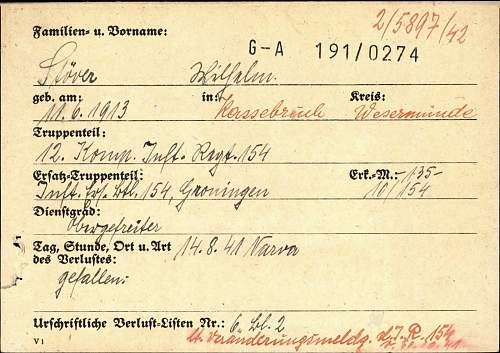 2/5897/42
Familien- u. Vorname:
G-A 191/0274
Stöver Wilhelm.
geb. am: in: Kreis:
11.6.1913 Kassebruch Wesermünde
Truppenteil:
12. Komp. Inft. Regt. 154
Ersatz-Truppenteil: Erk.-M.: -135-
Inft. Ers. Btl. 154, Groningen 10/154
Dienstgrad:
Obergefreiter
Tag, Stunde, Ort u. Art 14.8.41 Narva
des Verlustes:
gefallen.
Urschriftliche Verlust-Listen Nr.: 6. Bl. 2
lt. Veränderungsmeldg. d. I.R. 154
V 1